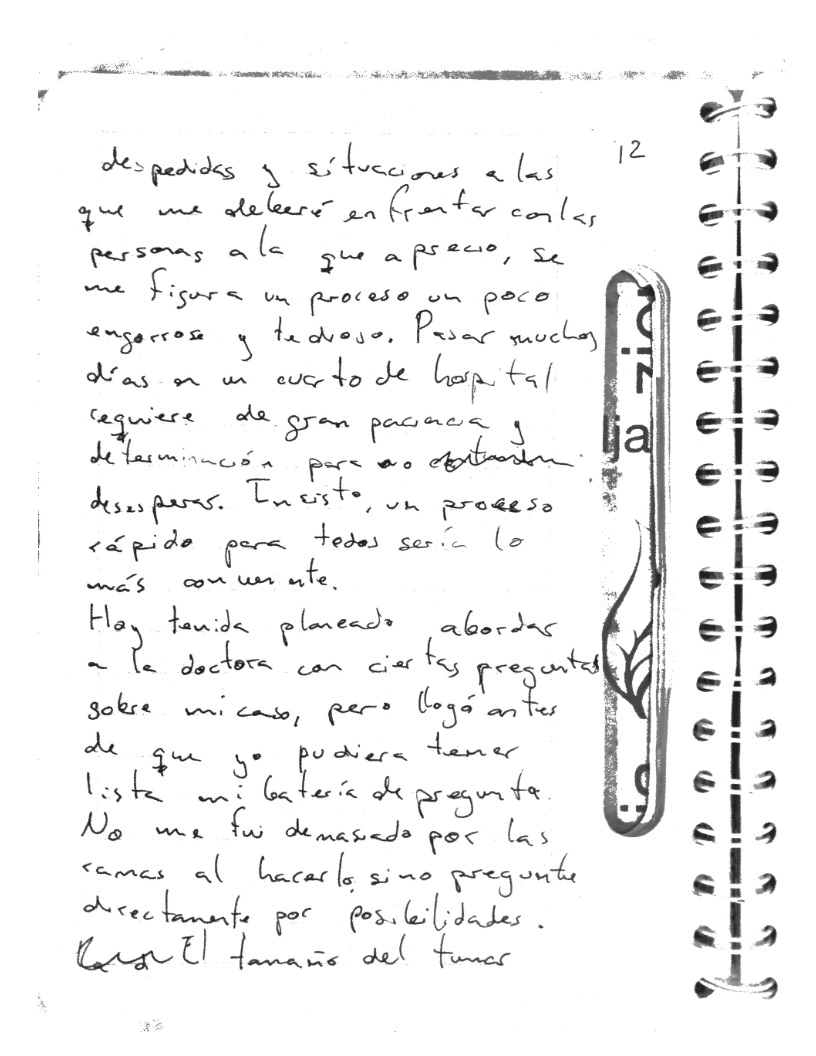 12
despedidas y situaciones a las
que me deberé enfrentar con las
personas a la que aprecio, se
me figura un proceso un poco
engorroso y tedioso. Pasar muchos
días en un cuarto de hospital
requiere de gran paciencia y
determinación para no
desesperar. Insisto, un proceso
rápido para todos sería lo
más conveniente.
Hoy tenida planeado abordar
a la doctora con ciertas preguntas
sobre mi caso, pero llegó antes
de que yo pudiera tener
lista mi batería de pregunta.
No me fui demasiado por las
ramas al hacerlo, sino pregunte
directamente por posibilidades.
El tamaño del tumor